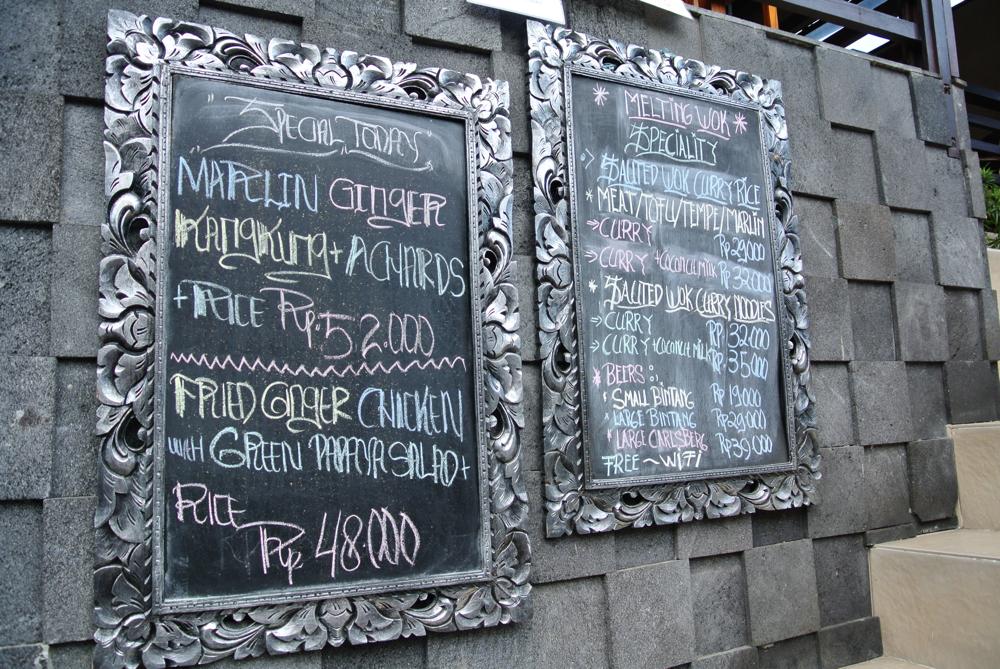 "SPECIAL TODAY"
MARLIN GINGER
KANGKUNG + ACHARDS
+ RICE Rp. 52.000
FRIED GINGER CHICKEN
WITH GREEN PAPAYA SALAD +
RICE
Rp. 48.000
* MELTING WOK *
SPECIALITY
SAUTED WOK CURRY RICE
* MEAT/TOFU/TEMPE/MARLIN
⇒ CURRY Rp 29.000
⇒ CURRY + COCONUT MILK Rp 32.000
* SAUTED WOK CURRY NOODLES
⇒ CURRY Rp 32.000
⇒ CURRY + COCONUT MILK Rp 35.000
* BEERS :
* SMALL BINTANG Rp 19.000
* LARGE BINTANG Rp 29.000
* LARGE CARLSBERG Rp 39.000
FREE ~ WIFI